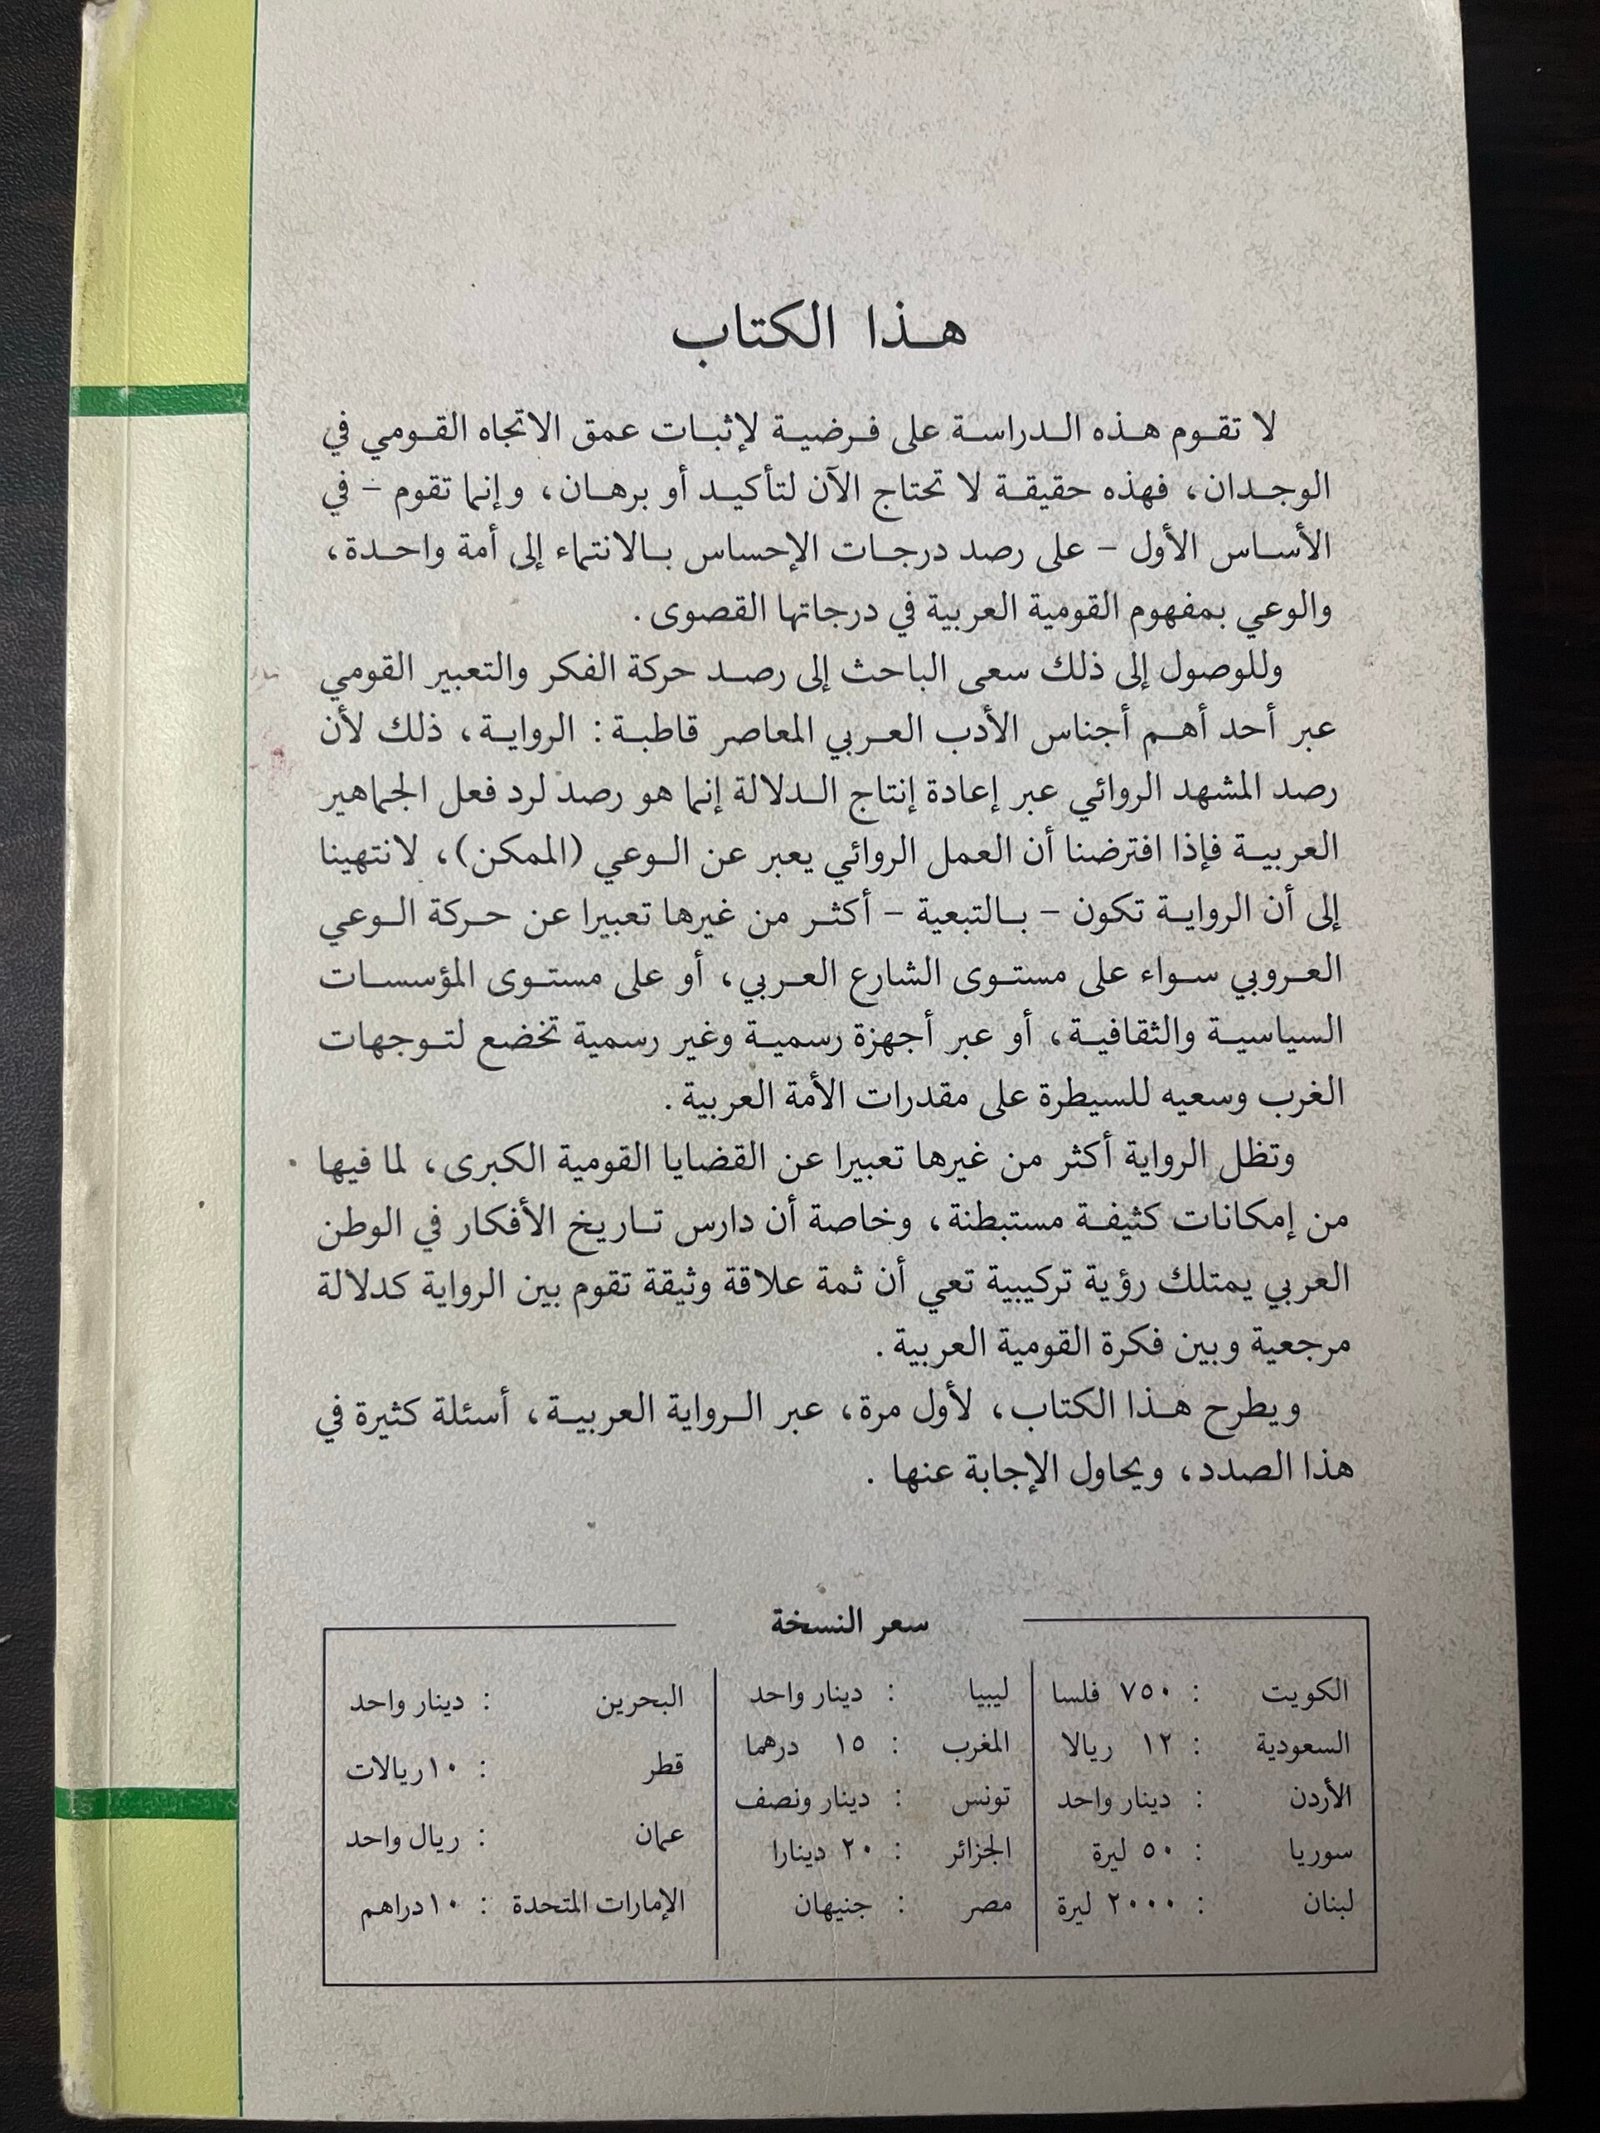 هذا الكتاب
لا تقوم هذه الدراسة على فرضية لإثبات عمق الاتجاه القومي في
الوجدان، فهذه حقيقة لا تحتاج الآن لتأكيد أو برهان، وإنما تقوم - في
الأساس الأول - على رصد درجات الإحساس بالانتماء إلى أمة واحدة،
والوعي بمفهوم القومية العربية في درجاتها القصوى.
وللوصول إلى ذلك سعى الباحث إلى رصد حركة الفكر والتعبير القومي
عبر أحد أهم أجناس الأدب العربي المعاصر قاطبة: الرواية، ذلك لأن
رصد المشهد الروائي عبر إعادة إنتاج الدلالة إنما هو رصد لرد فعل الجماهير
العربية فإذا افترضنا أن العمل الروائي يعبر عن الوعي (الممكن)، لانتهينا
إلى أن الرواية تكون - بالتبعية - أكثر من غيرها تعبيرا عن حركة الوعي
العروبي سواء على مستوى الشارع العربي، أو على مستوى المؤسسات
السياسية والثقافية، أو عبر أجهزة رسمية وغير رسمية تخضع لتوجهات
الغرب وسعيه للسيطرة على مقدرات الأمة العربية.
وتظل الرواية أكثر من غيرها تعبيرا عن القضايا القومية الكبرى، لما فيها
من إمكانات كثيفة مستبطنة، وخاصة أن دارس تاريخ الأفكار في الوطن
العربي يمتلك رؤية تركيبية تعي أن ثمة علاقة وثيقة تقوم بين الرواية كدلالة
مرجعية وبين فكرة القومية العربية.
ويطرح هذا الكتاب، لأول مرة، عبر الرواية العربية، أسئلة كثيرة في
هذا الصدد، ويحاول الإجابة عنها.
سعر النسخة
الكويت : ٧٥٠ فلسا
السعودية : ١٢ ريالا
الأردن : دينار واحد
سوريا : ٥٠ ليرة
لبنان : ٢٠٠٠ ليرة
ليبيا : دينار واحد
المغرب : ١٥ درهما
تونس : دينار ونصف
الجزائر : ٢٠ دينارا
مصر : جنيهان
البحرين : دينار واحد
قطر : ١٠ ريالات
عمان : ريال واحد
الإمارات المتحدة : ١٠ دراهم